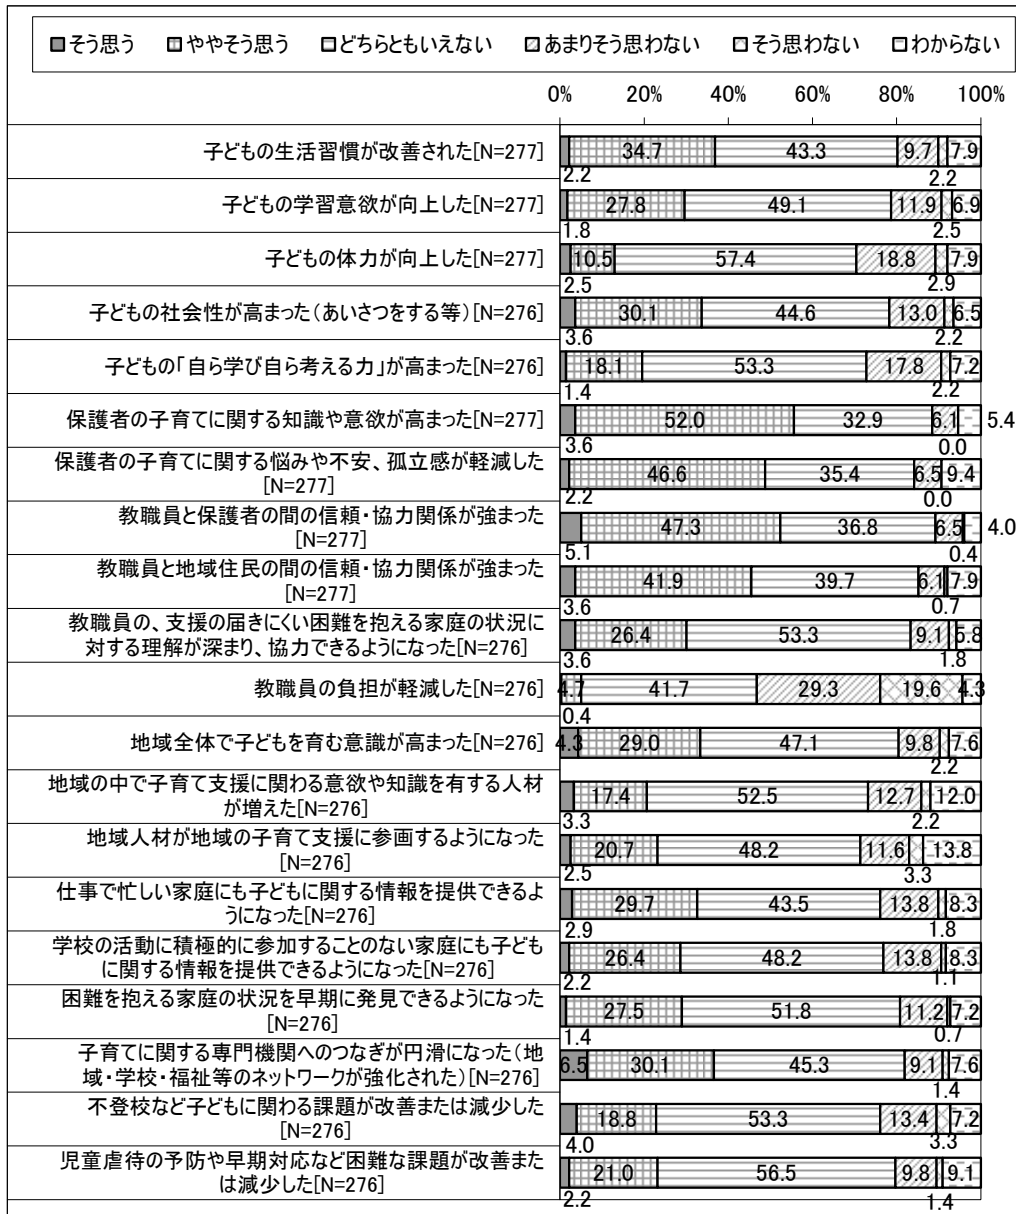 そう思う ややそう思う どちらともいえない あまりそう思わない そう思わない わからない
0% 20% 40% 60% 80% 100%
子どもの生活習慣が改善された[N=277] 34.7 43.3 9.7 7.9
2.2 2.2
子どもの学習意欲が向上した[N=277] 27.8 49.1 11.9 6.9
1.8 2.5
子どもの体力が向上した[N=277] 10.5 57.4 18.8 7.9
2.5 2.9
子どもの社会性が高まった(あいさつをする等)[N=276] 30.1 44.6 13.0 6.5
3.6 2.2
子どもの「自ら学び自ら考える力」が高まった[N=276] 18.1 53.3 17.8 7.2
1.4 2.2
保護者の子育てに関する知識や意欲が高まった[N=277] 52.0 32.9 6.1 5.4
3.6 0.0
保護者の子育てに関する悩みや不安、孤立感が軽減した
[N=277] 46.6 35.4 6.5 9.4
2.2 0.0
教職員と保護者の間の信頼・協力関係が強まった
[N=277] 47.3 36.8 6.5 4.0
5.1 0.4
教職員と地域住民の間の信頼・協力関係が強まった
[N=277] 41.9 39.7 6.1 7.9
3.6 0.7
教職員の、支援の届きにくい困難を抱える家庭の状況に
対する理解が深まり、協力できるようになった[N=276] 26.4 53.3 9.1 5.8
3.6 1.8
教職員の負担が軽減した[N=276] 4.7 41.7 29.3 19.6 4.3
0.4
地域全体で子どもを育む意識が高まった[N=276] 4.3 29.0 47.1 9.8 7.6
2.2
地域の中で子育て支援に関わる意欲や知識を有する人材
が増えた[N=276] 17.4 52.5 12.7 12.0
3.3 2.2
地域人材が地域の子育て支援に参画するようになった
[N=276] 20.7 48.2 11.6 13.8
2.5 3.3
仕事で忙しい家庭にも子どもに関する情報を提供できるよ
うになった[N=276] 29.7 43.5 13.8 8.3
2.9 1.8
学校の活動に積極的に参加することのない家庭にも子ども
に関する情報を提供できるようになった[N=276] 26.4 48.2 13.8 8.3
2.2 1.1
困難を抱える家庭の状況を早期に発見できるようになった
[N=276] 27.5 51.8 11.2 7.2
1.4 0.7
子育てに関する専門機関へのつなぎが円滑になった(地
域・学校・福祉等のネットワークが強化された)[N=276] 6.5 30.1 45.3 9.1 7.6
1.4
不登校など子どもに関わる課題が改善または減少した
[N=276] 18.8 53.3 13.4 7.2
4.0 3.3
児童虐待の予防や早期対応など困難な課題が改善また
は減少した[N=276] 21.0 56.5 9.8 9.1
2.2 1.4